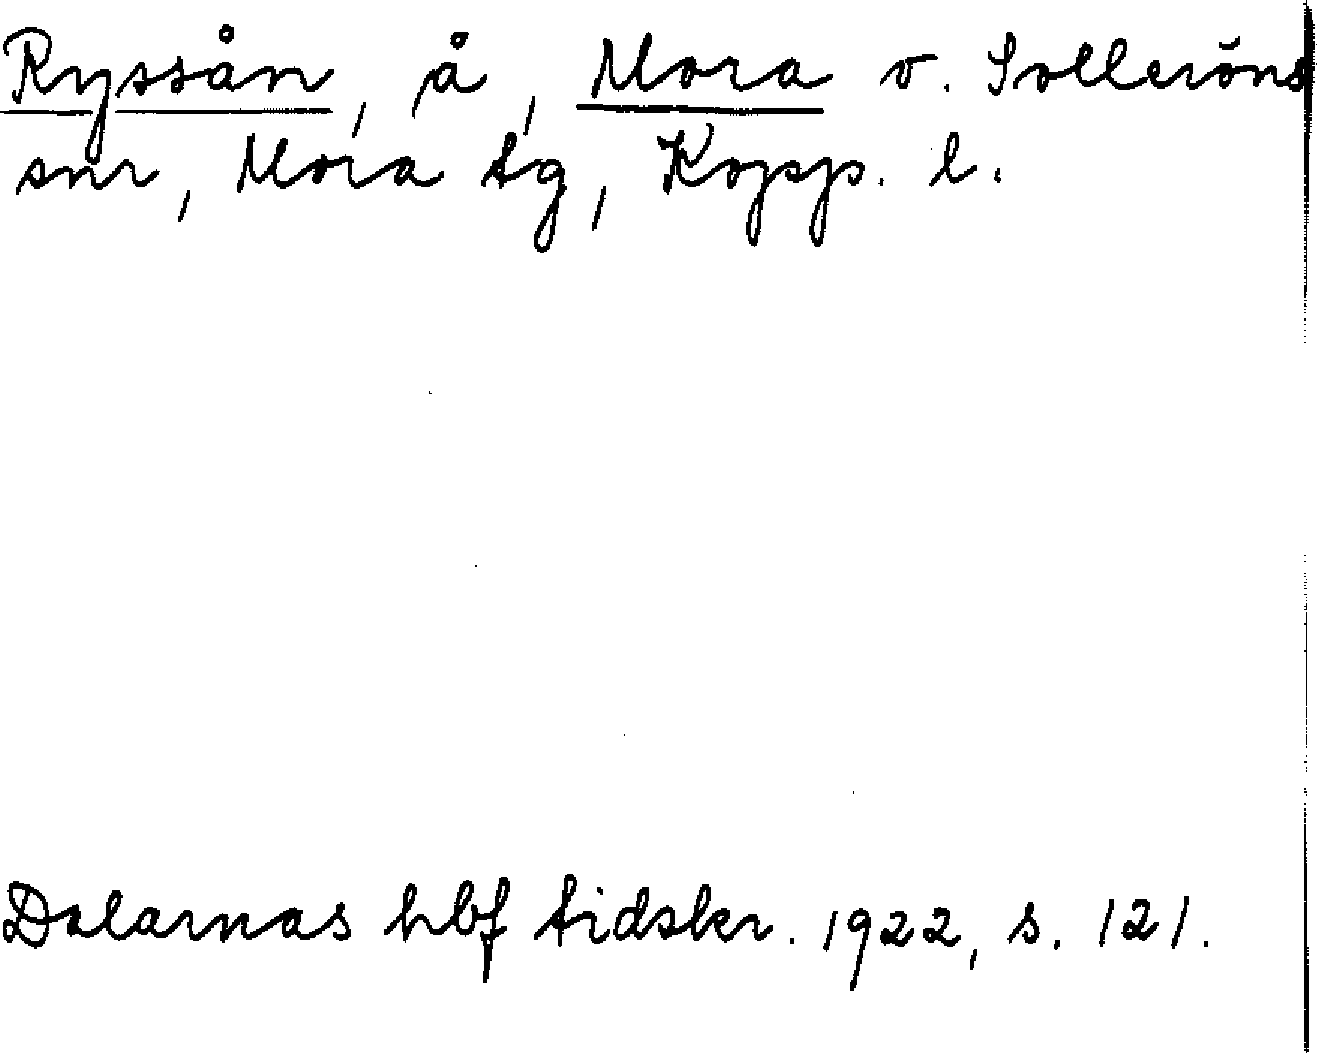 Ryssån, å, Mora o. Solleröns
snr, Mora tg, Kopp. l.
Dalarnas hbf tidskr. 1922, s. 121.